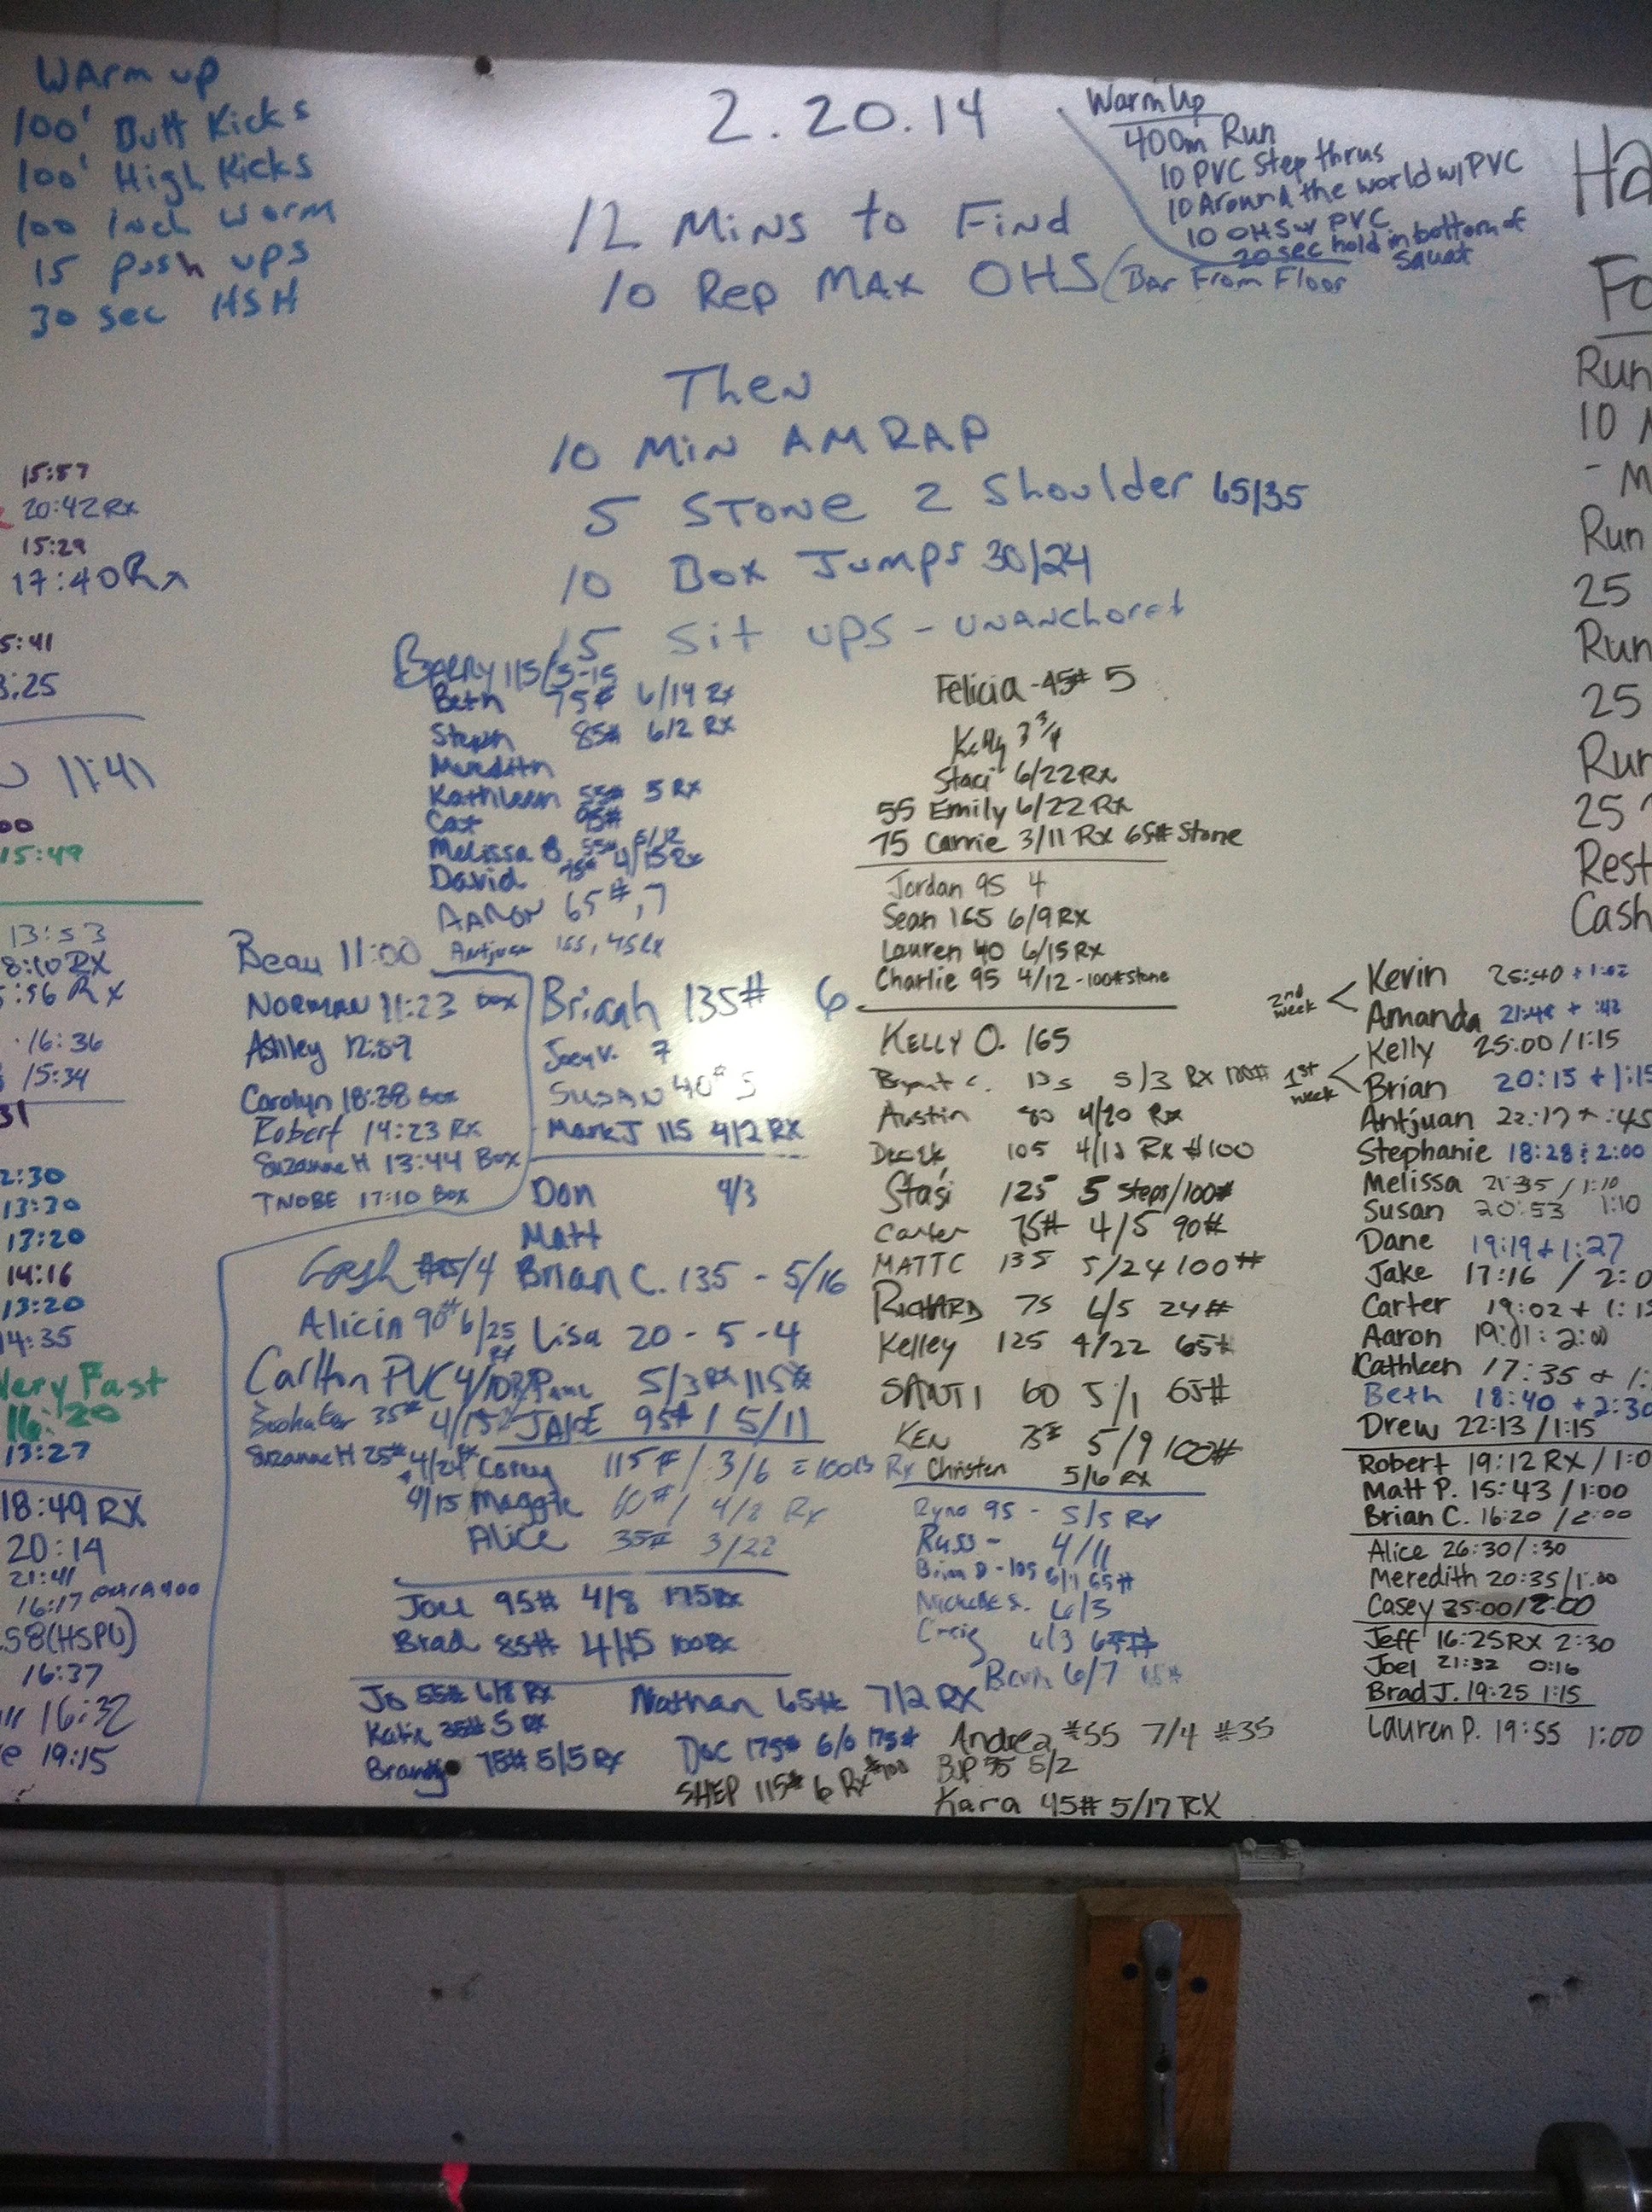 Warm up
100' Butt Kicks
100' High Kicks
100 Inch Worm
15 push ups
30 sec HSH
2.20.14
12 Mins to Find
10 Rep Max OHS (Bar From Floor
Warm Up
400m Run
10 PVC Step thrus
10 Around the world w/ PVC
10 OHS w/ PVC
20 sec hold in bottom of
squat
Then
10 Min AMRAP
5 Stone 2 Shoulder 65/35
10 Box Jumps 30/24
15 Sit ups - unanchored
15:57
20:42 Rx
15:29
17:40 Rx
5:41
3:25
11:41
00
15:49
13:53
8:10 RX
:56 Rx
16:36
15:34
31
2:30
13:30
13:20
14:16
13:20
4:35
Very Fast
16:20
13:27
18:49 RX
20:14
21:41
16:17 extra 400
58 (HSPU)
16:37
16:32
19:15
Barry 115/5-15
Beth 75# 6/14 Rx
Steph 85# 6/2 Rx
Meredith
Kathleen 55# 5 Rx
Cat 95#
Melissa B 55# 5/12
David 75# 4/15 Rx
Aaron 65#, 7
Antjuan 155, 4 Rx
Beau 11:00
Norman 11:23 box
Ashley 12:59
Carolyn 18:38 Box
Robert 14:23 Rx
Suzanne H 13:44 Box
TNOBE 17:10 Box
Briaah 135# 6
Joey V. 7
Susan 40# 5
Mark J 115 4/2 RX
Don 4/3
Matt
Brian C. 135 - 5/16
Alicia 90# 6/25 Rx
Lisa 20 - 5 - 4
Carlton PVC 4/10
5/3 Rx 115#
35# 4/15
JAKE 95# / 5/11
Suzanne H 25# 4/24
Corey 115# / 3/6 = 100lb Rx
4/15 Maggie 60# / 4/2 Rx
Alice 35# 3/22
Joel 95# 4/8 175Rx
Brad 85# 4/15 100Rx
Jo 55# 6/8 Rx
Katie 35# 5 Rx
Brandy 75# 5/5 Rx
Nathan 65# 7/2 RX
Doc 175# 6/6 175#
SHEP 115# 6 Rx #100
Felicia - 45# 5
Kelly 3 3/4
Staci 6/22 Rx
55 Emily 6/22 Rx
75 Carrie 3/11 Rx 65# Stone
Jordan 95 4
Sean 165 6/9 RX
Lauren 40 6/15 RX
Charlie 95 4/12 - 100# stone
Kelly O. 165
Bryant C. 135 5/3 Rx 100#
Austin 80 4/20 Rx
Derek 105 4/12 Rx #100
Stasi 125 5 steps/100#
Carter 75# 4/5 90#
MATT C 135 5/24 100#
RICHARD 75 6/5 24#
Kelley 125 4/22 65#
SANTI 60 5/1 65#
KEN 75# 5/9 100#
Christen 5/6 RX
Ryno 95 - 5/5 Rx
Russ - 4/11
Brian D - 105 6/1 65#
Michelle S. 6/3
Craig 6/3
6/7
Andrea #55 7/4 #35
95 5/2
Kara 45# 5/17 RX
2nd week
Kevin 25:40 + 1:02
Amanda 21:48 + :42
1st week
Kelly 25:00/1:15
Brian 20:15 + 1:15
Antjuan 22:17 + :45
Stephanie 18:28 : 2:00
Melissa 21:35 / 1:10
Susan 20:53 1:10
Dane 19:19 + 1:27
Jake 17:16 / 2:0
Carter 19:02 + 1:15
Aaron 19:01 : 2:00
Kathleen 17:35 + 1:
Beth 18:40 + 2:30
Drew 22:13 / 1:15
Robert 19:12 RX / 1:0
Matt P. 15:43 / 1:00
Brian C. 16:20 / 2:00
Alice 26:30 / :30
Meredith 20:35 / 1:00
Casey 25:00 / 2:00
Jeff 16:25 RX 2:30
Joel 21:32 0:16
Brad J. 19:25 1:15
Lauren P. 19:55 1:00
Ha
Fo
Run
10
- M
Run
25
Run
25
Run
25
Rest
Cash